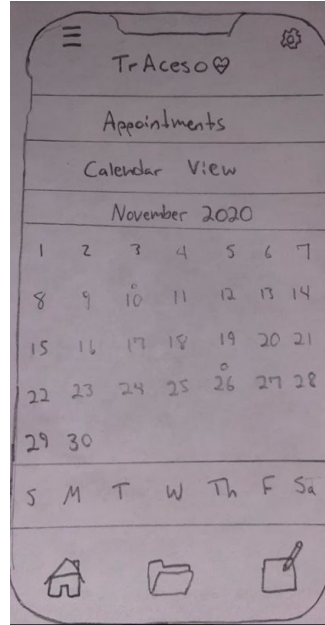 TrAceso
Appointments
Calendar View
November 2020
1 2 3 4 5 6 7
8 9 10 11 12 13 14
15 16 17 18 19 20 21
22 23 24 25 26 27 28
29 30
S M T W Th F Sa